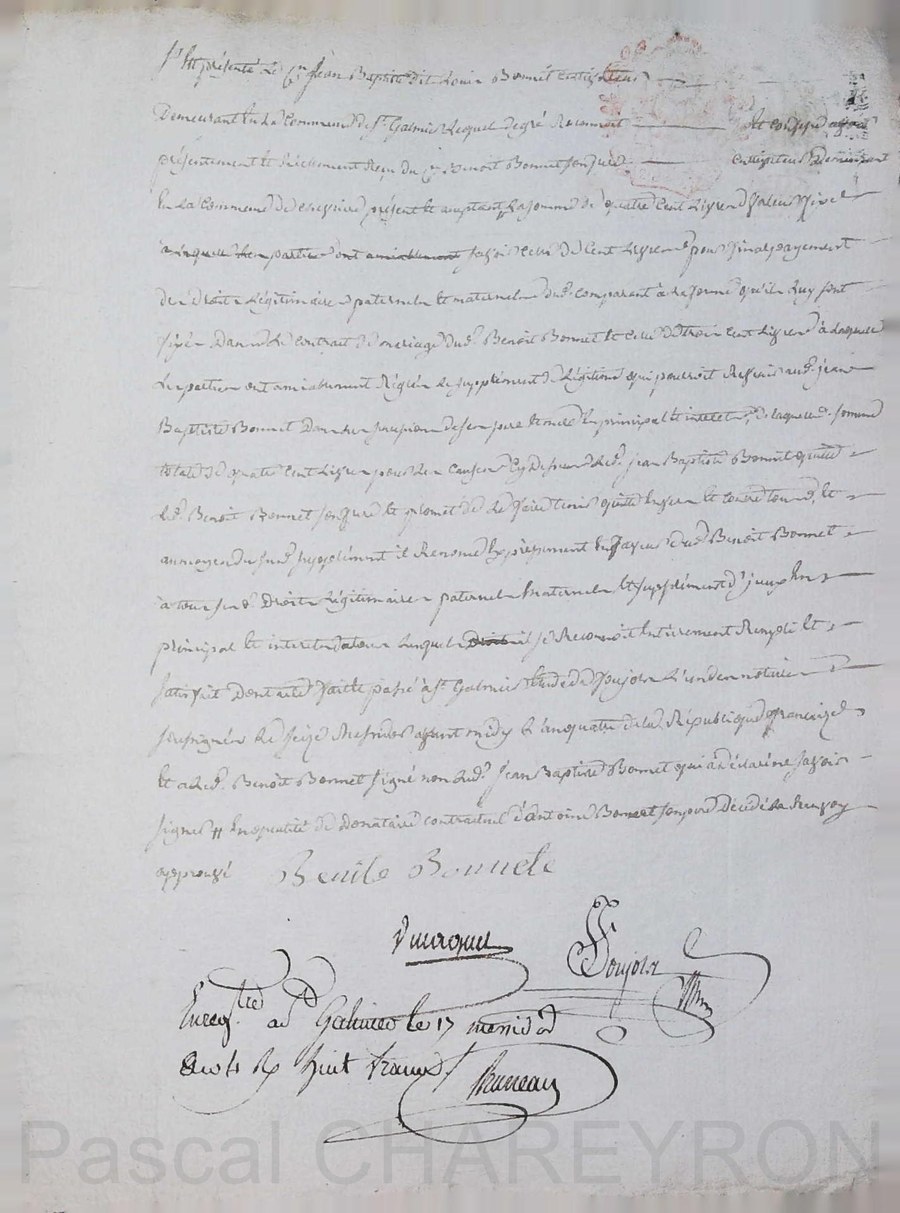 S'est présenté le Cn Jean Baptiste dit Louis Bonnet cultivateur
Demeurant en la Commune de St Galmier lequel de gré Reconnoit
présentement et Réellement Reçu du Cn Benoit Bonnet son frere cultivateur Demeurant
En la Commune de present et acceptant la somme de quatre Cent Livres
parties ont amiablement savoir celle de Cent Livres pour final payement
des droits Légitimaires paternels et maternels dud. comparant à la forme qu'ils luy sont
fixés Dans le contrat de mariage dud. Benoit Bonnet et celle de trois Cent Livres à laquelle
Les parties ont amiablement Réglé le supplément de Légitime qui pourroit Revenir aud. jean
Baptiste Bonnet Dans les successions de ses pere et mere En principal et interets, de laquelle somme
totale de quatre Cent Livres pour les causes Cy Dessus led. jean Baptiste Bonnet quitte
led. Benoit Bonnet son frere et promet de le faire tenir quitte Envers et contre tous, et
au moyen du Renonce Expressement En faveur dud. Benoit Bonnet
à tous sesd. Droits Légitimaires paternels maternels et supplément d'iceux En
principal et interets desquels il se Reconnoit Entierement Rempli et
satisfait Dont acte fait et passé à St Galmier Etude de Poujols L'un des notaires
soussignés Le seize Messidor avant midy L'an quatre de la République française
et a led. Benoit Bonnet signé non led. Jean Baptiste Bonnet qui a déclaré ne savoir
signer // En qualité de donataire contractuel d'Antoine Bonnet son pere Décédé Le Renvoy
approuvé Benite Bonnete
Poujols
Enregtré a St Galmier le 17 messidor
an 4 Rx huit francs
Bruneau
Pascal CHAREYRON